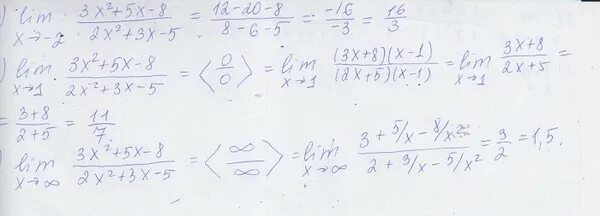 ) lim x→-2 (3x²+5x-8)/(2x²+3x-5) = (12-20-8)/(8-6-5) = (-16)/(-3) = 16/3
) lim x→1 (3x²+5x-8)/(2x²+3x-5) = ⟨0/0⟩ = lim x→1 ((3x+8)(x-1))/((2x+5)(x-1)) = lim x→1 (3x+8)/(2x+5) =
= (3+8)/(2+5) = 11/7
) lim x→∞ (3x²+5x-8)/(2x²+3x-5) = ⟨∞/∞⟩ = lim x→∞ (3+5/x-8/x²)/(2+3/x-5/x²) = 3/2 = 1,5.